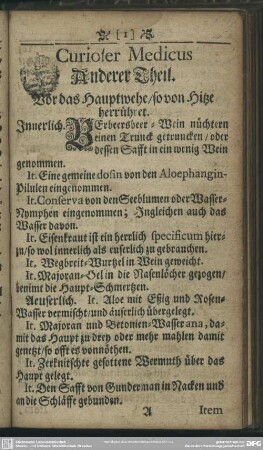 [1]
Curioser Medicus
Anderer Theil.
Vor das Hauptwehe/so von Hitze
herrühret.
Innerlich. BErbersbeer-Wein nüchtern
einen Trunck getruncken/oder
dessen Safft in ein wenig Wein
genommen.
It. Eine gemeine dosin von den Aloephangin-
Pilulen eingenommen.
It. Conserva von den Seeblumen oder Wasser-
Nymphen eingenommen; Ingleichen auch das
Wasser davon.
It. Eisenkraut ist ein herrlich specificum hier-
zu/so wol innerlich als euserlich zu gebrauchen.
It. Wegbreit-Wurtzel in Wein geweicht.
It. Majoran-Oel in die Nasenlöcher gezogen/
benimt die Haupt-Schmertzen.
Aeuserlich. It. Aloe mit Eßig und Rosen-
Wasser vermischt/und äuserlich übergelegt.
It. Majoran und Betonien-Wasser ana, da-
mit das Haupt zu drey oder mehr mahlen damit
genetzt/so offt es vonnöthen.
It. Zerknitschte gesottene Wermuth über das
Haupt gelegt.
It. Den Safft von Gunderman in Nacken und
an die Schläffe gebunden.
A Item